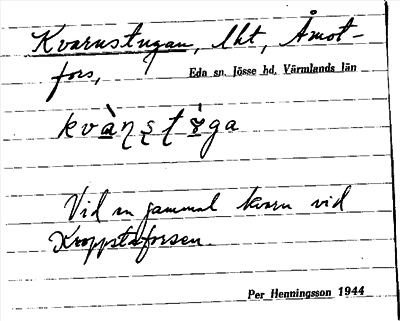 Kvarnstugan, lht, Åmot-
fors, Eda sn. Jösse hd. Värmlands län
kvàɳʂʈɞ̀ga
Vid en gammal kvarn vid
Kroppstaforsen.
Per Henningsson 1944